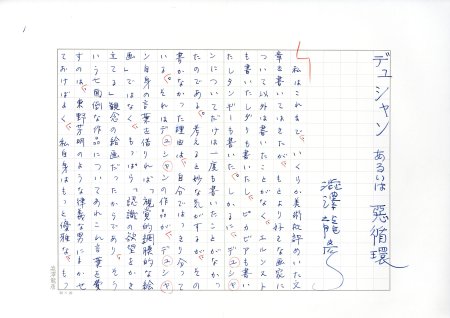 デュシャン あるいは 悪循環
澁澤龍彦
私はこれまで、いくらか美術批評めいた文
章を書いてはきたが、もとより好きな画家に
ついて以外は書いたことがなく、エルンスト
も書いたしダリも書いたし、ピカビアも書い
たしタンギーも書いた。しかるに、デュシャ
ンについてだけは一度も書いたことがなかっ
たのである。考えると妙な気がするが、その
書かなかった理由は、自分ではっきり分って
いる。それはデュシャンの作品が、デュシャ
ン自身の言葉を借りれば「視覚的網膜的な絵
画」ではなく、もっぱら「認識の欲望をかき
立てる」観念の絵画だったからであり、そう
いう七面倒な作品についてあれこれ言葉を費
すのは、東野芳明のような律義な男にまかせ
ておけばよく、私自身はもっと優雅な、もっ